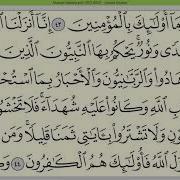 مَآ أُوْلَٰٓئِكَ بِٱلْمُؤْمِنِينَ ٤٣ إِنَّآ أَنزَلْنَا
هُدًى وَنُورٌ يَحْكُمُ بِهَا ٱلنَّبِيُّونَ ٱلَّذِينَ
هَادُوا۟ وَٱلرَّبَّٰنِيُّونَ وَٱلْأَحْبَارُ بِمَا ٱسْتُحْ
بِ ٱللَّهِ وَكَانُوا۟ عَلَيْهِ شُهَدَآءَ فَلَا تَخْشَوُا۟
وْنِ وَلَا تَشْتَرُوا۟ بِـَٔايَٰتِى ثَمَنًا قَلِيلًا وَ
لَ ٱللَّهُ فَأُوْلَٰٓئِكَ هُمُ ٱلْكَٰفِرُونَ ٤٤ وَكَ